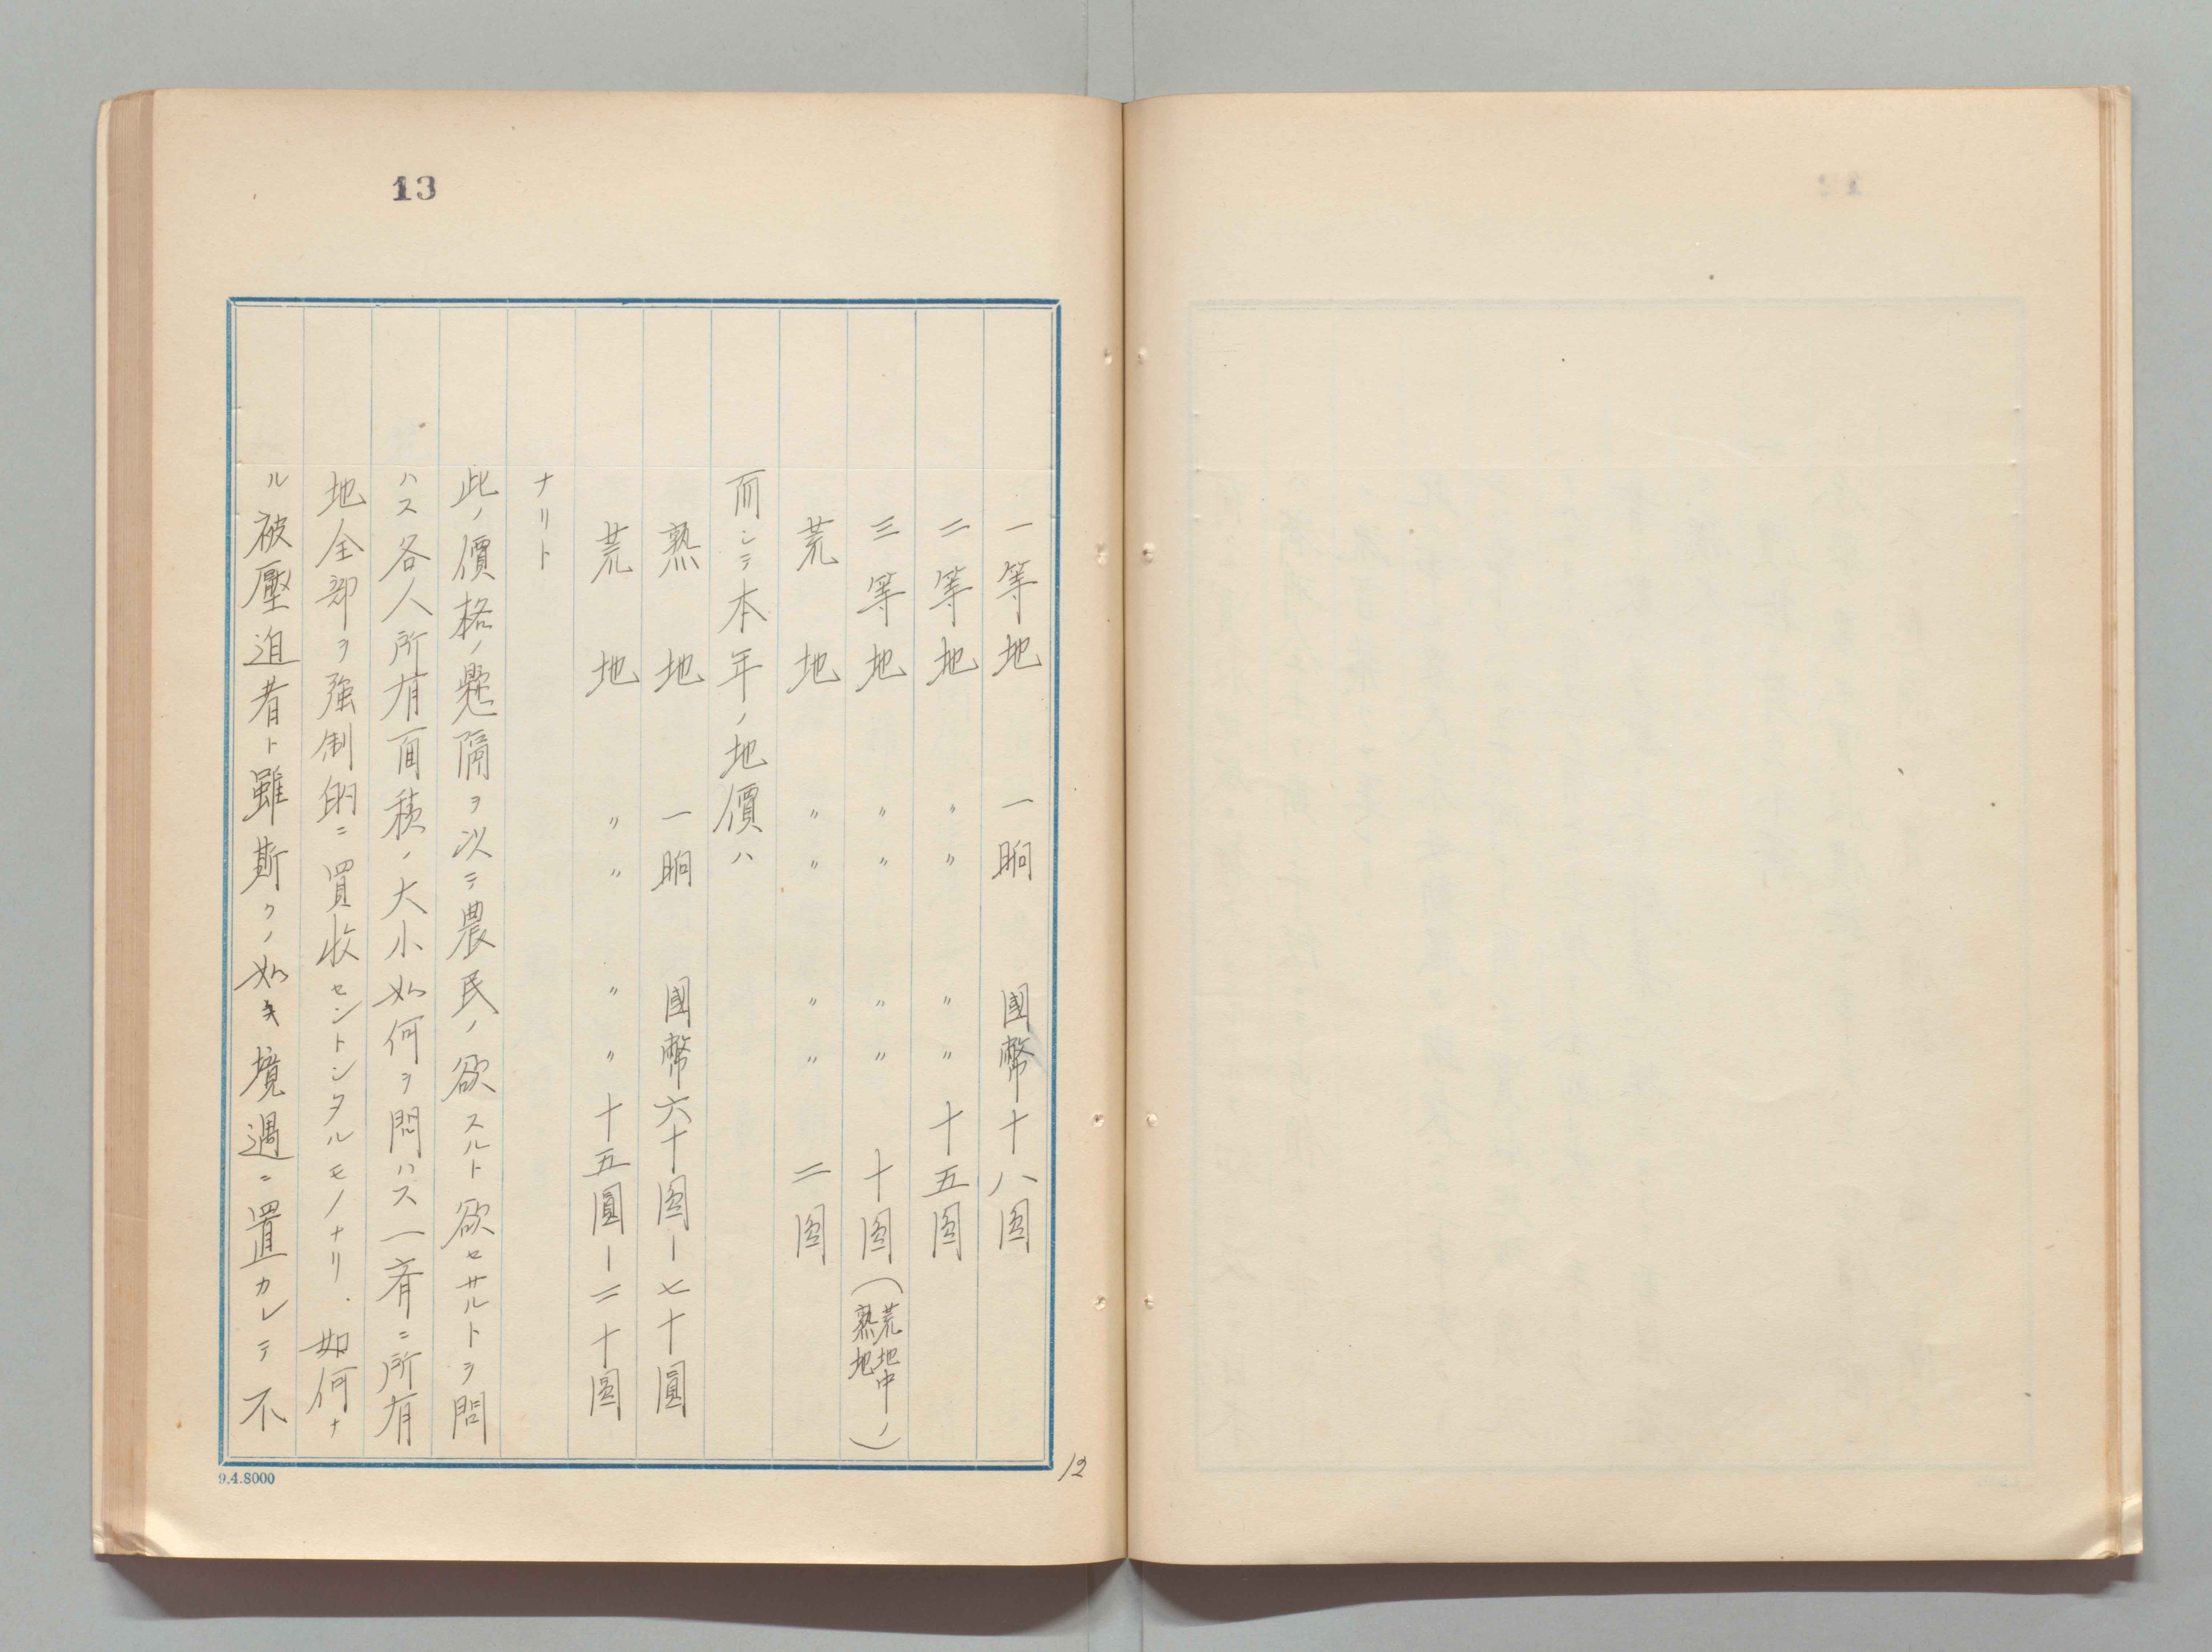 13
一等地 一晌 國幣十八圓
二等地 〃〃 〃〃十五圓
三等地 〃〃 〃〃 十圓(荒地中ノ熟地)
荒地 〃〃 〃〃 二圓
而シテ本年ノ地價ハ
熟地 一晌 國幣六十圓—七十圓
荒地 〃〃 〃〃十五圓—二十圓
ナリト
此ノ價格ノ懸隔ヲ以テ農民ノ欲スルト欲セサルトヲ問
ハス各人所有面積ノ大小如何ヲ問ハス一齊ニ所有
地全部ヲ強制的ニ買收セントシタルモノナリ.如何ナ
ル被壓迫者ト雖斯クノ如キ境遇ニ置カレテ不
9.4.8000
12